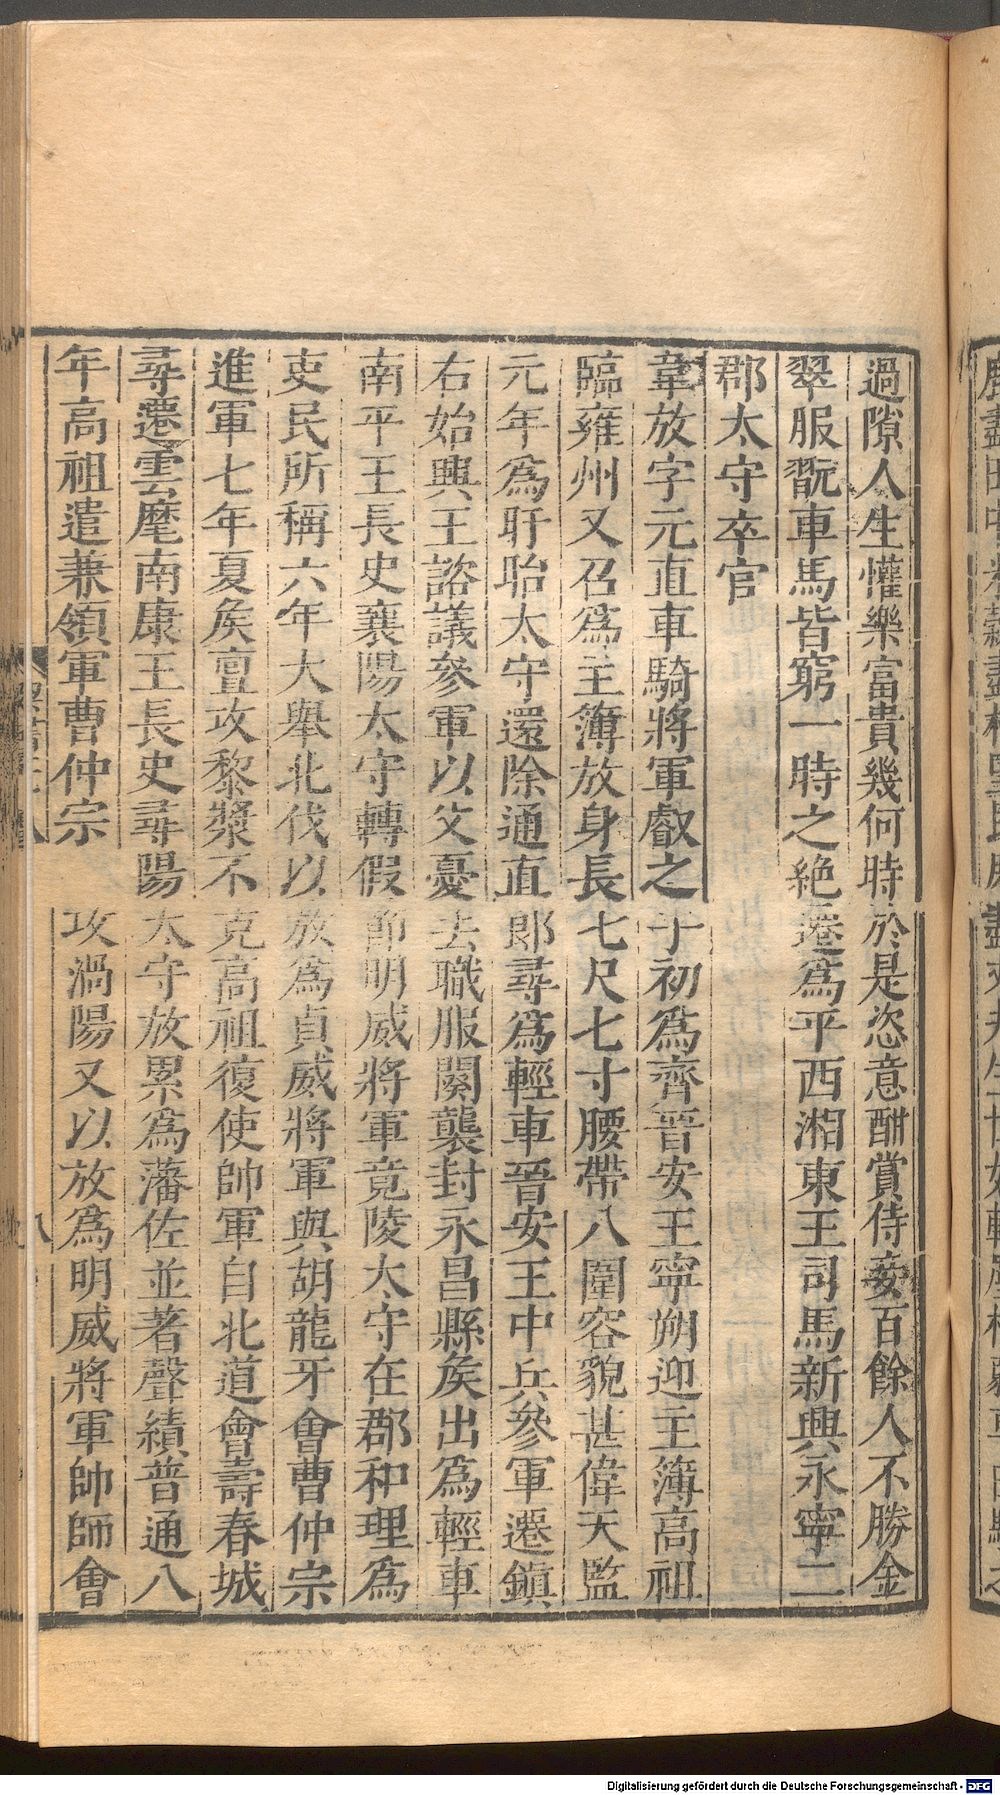 過隙人生懽樂富貴幾何時於是恣意酣賞侍妾百餘人不勝金
翠服翫車馬皆窮一時之絶遷爲平西湘東王司馬新興永寧二
郡太守卒官
韋放字元直車騎將軍叡之子初爲齊晉安王寧朔迎主簿高祖
臨雍州又召爲主簿放身長七尺七寸腰帶八圍容貌甚偉天監
元年爲盱眙太守還除通直郎尋爲輕車晉安王中兵參軍遷鎭
右始興王諮議參軍以父憂去職服闋襲封永昌縣矦出爲輕車
南平王長史襄陽太守轉假節明威將軍竟陵太守在郡和理爲
吏民所稱六年大舉北伐以放爲貞威將軍與胡龍牙會曹仲宗
進軍七年夏矦亶攻黎漿不克高祖復使帥軍自北道會壽春城
尋遷雲麾南康王長史尋陽太守放累爲藩佐並著聲績普通八
年高祖遣兼領軍曹仲宗攻渦陽又以放爲明威將軍帥師會
八
Digitalisierung gefördert durch die Deutsche Forschungsgemeinschaft - DFG